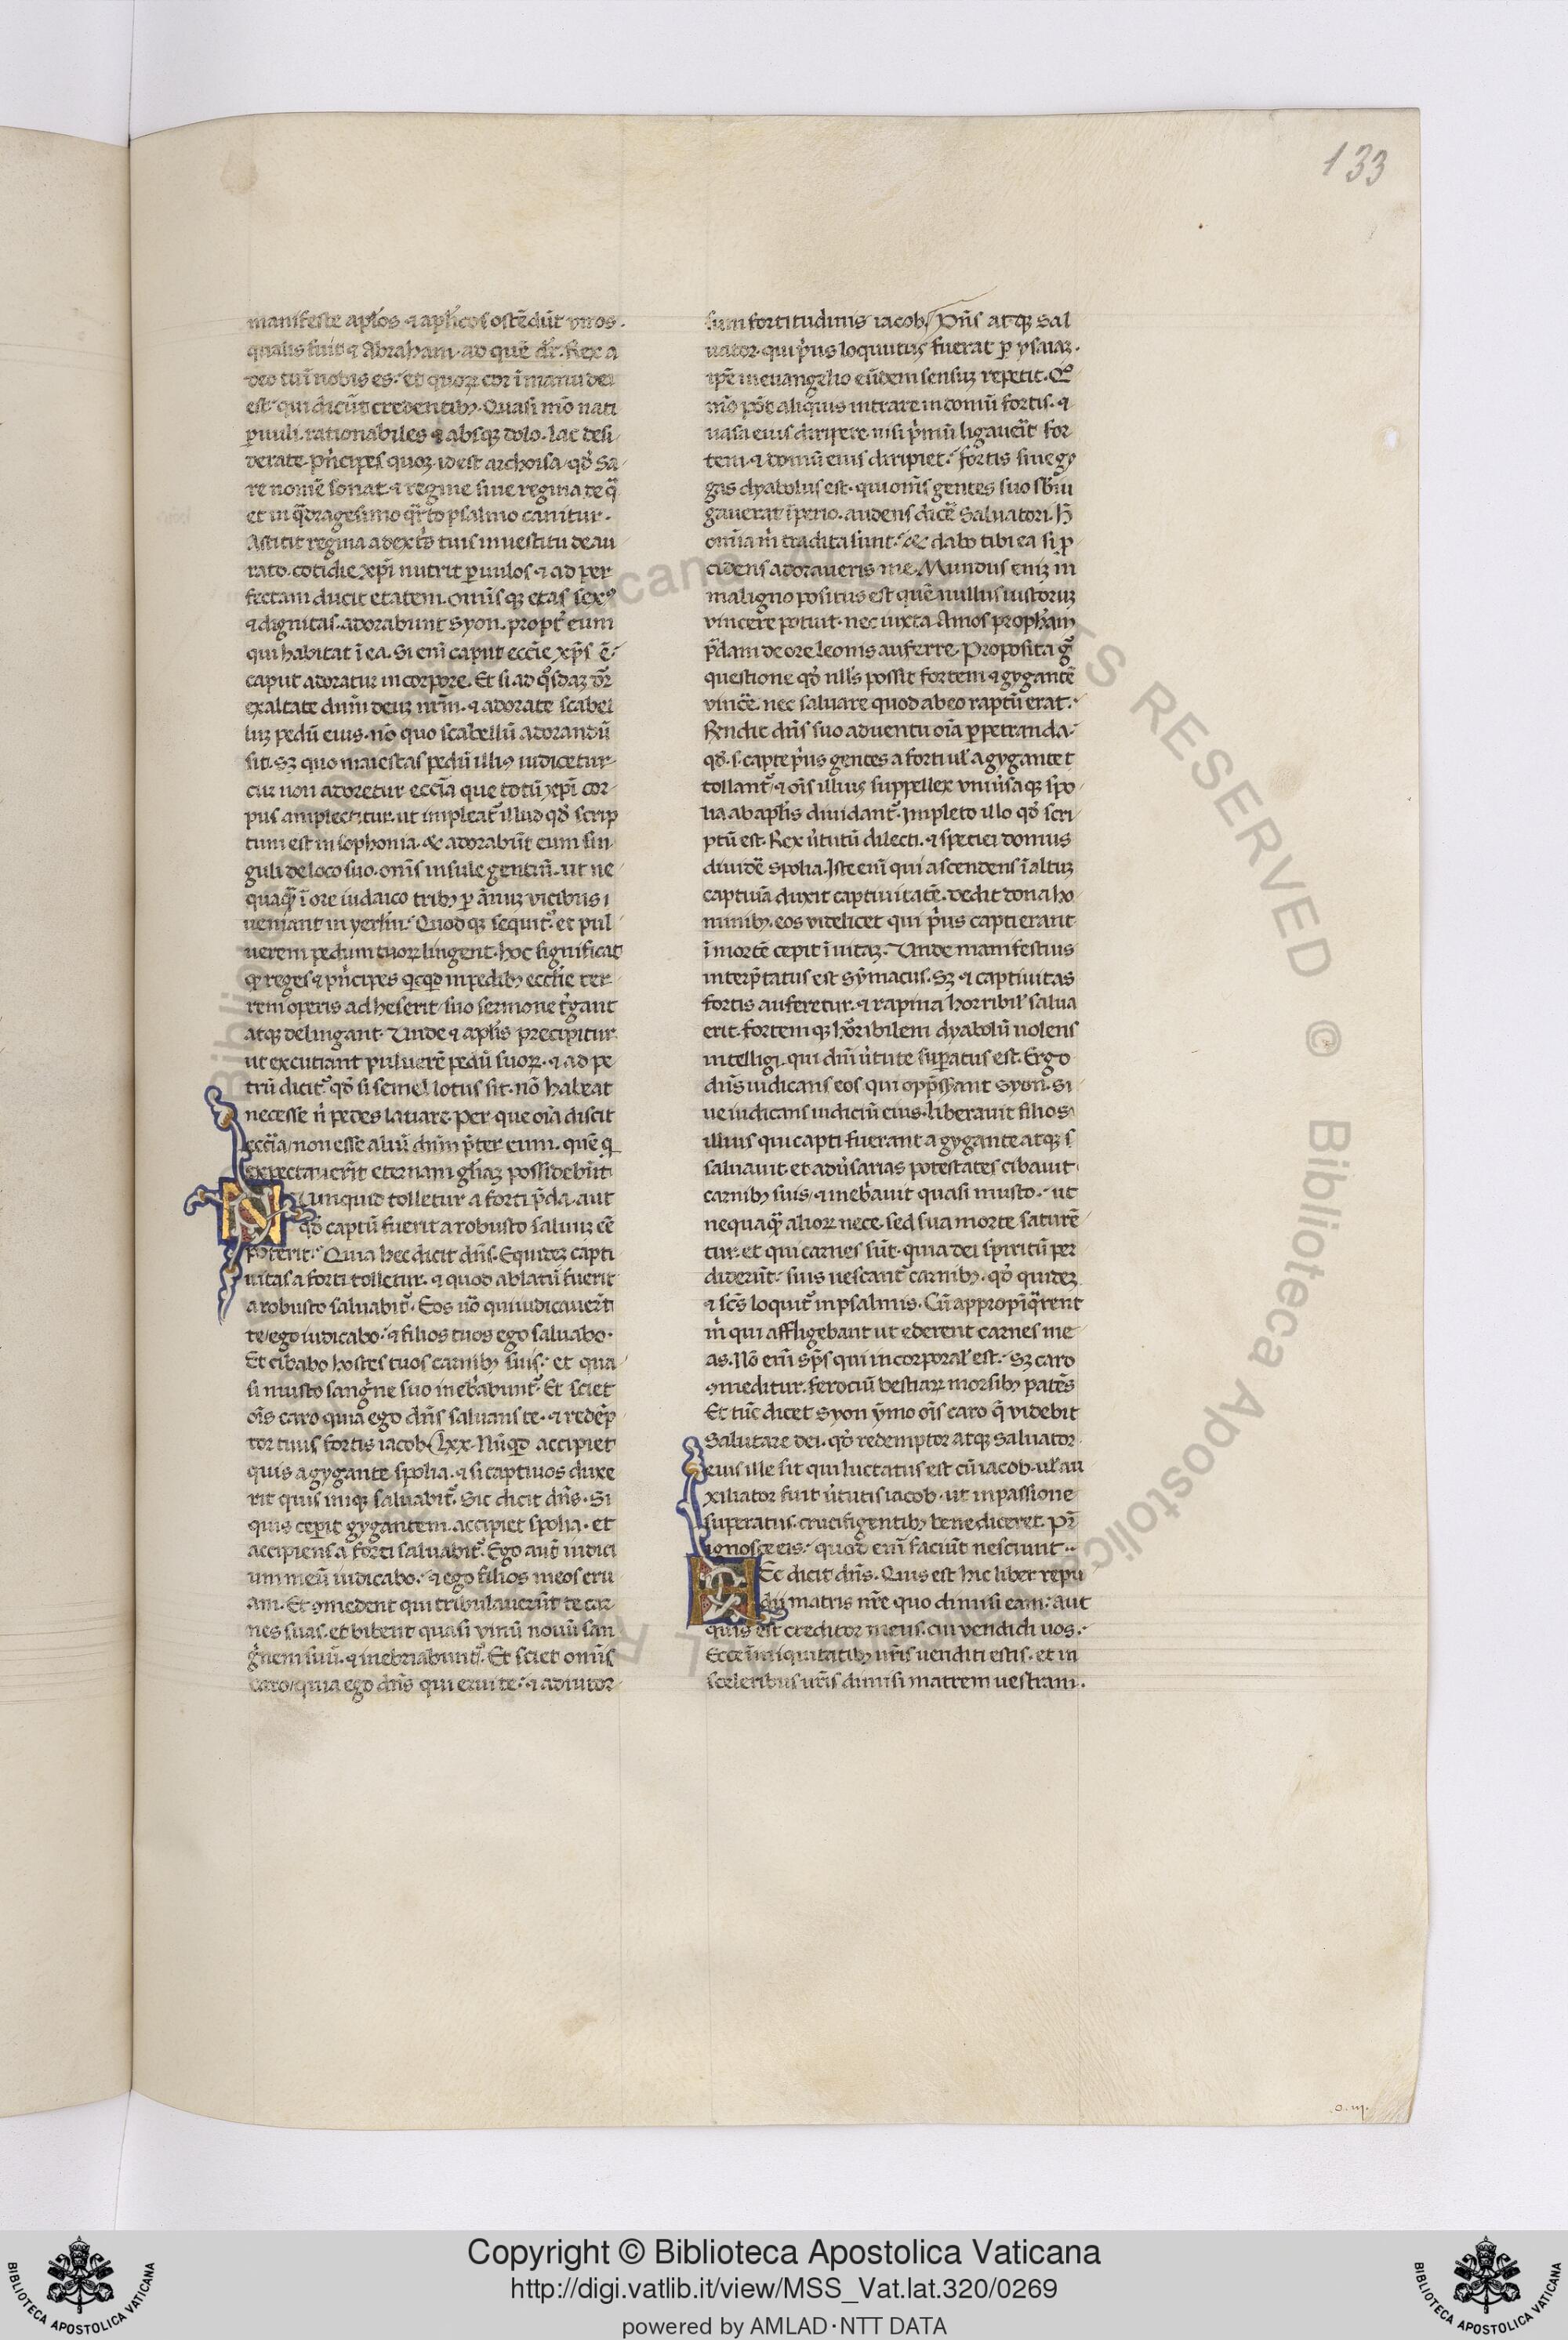 133
manifeste apłos ⁊ apłicos ostẽdũt viros.
qualis fuit ⁊ Abraham. ad quẽ dr̃. Rex a
deo tu ĩ nobis es. et quoꝝ cor ĩ manu dei
est. qui dicũt credentibꝰ. Quasi mõ nati
ꝑuuli. rationabiles ⁊ absqꝫ dolo. lac desi
derate. pñcipes quoꝫ. id est archoisa. qđ sa
re nomẽ sonat. ⁊ regine siue regina de q̃
et in q̃dragesimo q̃rto psalmo canitur.
Astitit regina a dextř tuis in uestitu deau
rato. cotidie xp̃i nutrit ꝑuulos. ⁊ ad per
fectam ducit etatem. omis qꝫ etas sexꝰ
⁊ dignitas. adorabunt syon. propť eum
qui habitat ĩ ea. Si eni caput eccie xp̃s ẽ.
caput adoratur in corpore. Et si ad q̊sdaꝫ dr̃
exaltate dnm̃ deuꝫ nrm̃. ⁊ adorate scabel
luꝫ pedũ eius. nõ quo scabellũ adorandũ
sit. Sꝫ quo maiestas pedũ illiꝰ iudicetur.
cur non adoretur eccĩa que totũ xp̃i cor
pus amplectitur. ut impleat᷑ illud qđ scrip
tum est in sophonia. & adorabũt eum sin
guli de loco suo. omĩs insule gentiũ. ut ne
quaq̃ ĩ ore iudaico tribꝰ ꝑ ãnuꝫ vicibus i
ueniant in yerłm. Quod qꝫ sequit᷑. et pul
uerem pedum tuoꝝ lingent. hoc significat
q̊ reges ⁊ pñcipes qͥcqͥd in pedibꝰ ecclie ter
reni operis adheserit. suo sermone t̃gant
atqꝫ delingant. Unde ⁊ apłis precipitur
ut excutiant puluerẽ pedũ suoꝝ. ⁊ ad pe
trũ dicit᷑ qđ si semel lotus sit. nõ habeat
necesse ñ pedes lauare. per que oĩa discit
eccĩa. non esse aliũ dnm̃ p̃ter eum. quẽ qͥ
expectauerĩt eternam głiaꝫ possidebũt.
Nunquid tolletur a forti p̃da. aut
qđ captũ fuerit a robusto saluuꝫ eẽ
poterit. Quia hec dicit dñs. Equideꝫ capti
uitas a forti tolletur. ⁊ quod ablatũ fuerit
a robusto saluabit᷑. Eos uõ qui iudicauerĩt
te. ego iudicabo. ⁊ filios tuos ego saluabo.
Et cibabo hostes tuos carnibꝰ suis. et qua
si musto sangͥne suo inebͥabunt᷑. Et sciet
oĩs caro quia ego dñs saluans te. ⁊ redẽp
tor tuus fortis iacob. lxx. Nũqͥd accipiet
quis a gygante spolia. ⁊ si captiuos duxe
rit quis inique saluabit᷑. Sic dicit dñs. Si
quis ceperit gygantem. accipiet spolia. et
accipiens a forti saluabit᷑. Ego aut̃ iudici
um meũ iudicabo. ⁊ ego filios meos eru
am. Et ꝯmedent qui tribulauerũt te car
nes suas. et bibent quasi vinũ nouũ san
gͥnem suũ. ⁊ inebriabunt᷑. Et sciet omĩs
caro. quia ego dñs qui erui te. ⁊ adiutor
sum fortitudinis iacob. Dñs atqꝫ sal
uator. qui pͥus loquutus fuerat ꝑ ysaiaꝫ.
ipẽ in euangelio eũdem sensuꝫ repetit. Qͦ
mõ põt aliquis intrare in domũ fortis. ⁊
uasa eius diripere. nisi pͥmũ ligauerĩt for
tem. ⁊ domũ eius diripiet. fortis siue gy
gas dyabolus est. qui omĩs gentes suo sbiu
gauerat ĩperio. audens dicẽ saluatori. h̃
omĩa m̃ tradita sunt. & dabo tibi ea si ꝓ
cidens adoraueris me. Mundus eniꝫ in
maligno positus est quẽ nullus iustoruꝫ
vincere potuit. nec iuxta Amos prophãm
p̃dam de ore leonis auferre. Proposita g̊
questione qđ nllĩs possit fortem ⁊ gygantẽ
vincẽ. nec saluare quod ab eo raptũ erat.
Rendit dñs suo aduentu oĩa ꝑpetranda.
qđ. s. capte pͥus gentes a forti uł a gygante t
tollant᷑. ⁊ oĩs illius suppellex vniũsa qꝫ spo
lia ab apłis diuidant᷑. Impleto illo qđ scri
ptũ est. Rex ũtutũ dilecti. ⁊ speciei domus
diuidẽ spolia. Iste eni qui ascendens ĩ altuꝫ
captiuã duxit captiuitatẽ. dedit dona ho
minibꝰ. eos videlicet qui pͥus capti erant
ĩ mortẽ cepit ĩ uitaꝫ. Unde manifestius
interp̃tatus est sỹmacus. Sꝫ ⁊ captiuitas
fortis auferetur. ⁊ rapina horribił salua
erit. fortem qꝫ horibilem dyabolũ uolens
intelligi. qui diũ ũtute superatus est. Ergo
dñs iudicans eos qui opp̃ssant syon. si
ue iudicans iudiciũ eius. liberauit filios
illius qui capti fuerant a gygante atqꝫ s
saluauit. et adũsarias potestates cibauit
carnibꝰ suis. ⁊ inebͥauit quasi musto. ut
nequaq̃ alioꝝ nece. sed sua morte saturẽ
tur. et qui carnes sũt. quia dei spiritũ per
diderũt. suis uescant᷑ carnibꝰ. qđ quideꝫ
⁊ scs̃ loquit᷑ in psalmis. Cũ appropĩq̃rent
m̃ qui affligebant ut ederent carnes me
as. Nõ eni sp̃s qui incorporał est. Sꝫ caro
ꝯmeditur. ferociũ bestiaꝝ morsibꝰ patẽs
Et tũc dicet syon ỹmo oĩs caro q̃ videbit
Salutare dei. qđ redemptor atqꝫ saluator
eius ille sit qui luctatus est cũ iacob. uł au
xiliator fuit ũtutis iacob. ut in passione
superatus. crucifigentibꝰ benediceret. Pr̃
ignosce eis. quod eni faciũt nesciunt.
Ec dicit dñs. Quis est hic liber repu
dii matris nr̃e quo dimisi eam. aut
quis est creditor meus. cui vendidi uos.
Ecce ĩ iniquitatibꝰ ur̃is uenditi estis. et in
sceleribus ur̃is dimisi matrem uestram.
.o. iij.
Copyright © Biblioteca Apostolica Vaticana
http://digi.vatlib.it/view/MSS_Vat.lat.320/0269
powered by AMLAD·NTT DATA